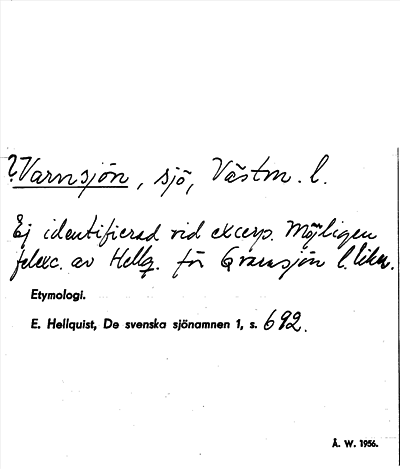 ?Varnsjön, sjö, Västm. l.
Ej identifierad vid excerp. Möjligen
felexc. av Hellq. för Gransjön l. likn.
Etymologi.
E. Hellquist, De svenska sjönamnen 1, s. 692.
Å. W. 1956.